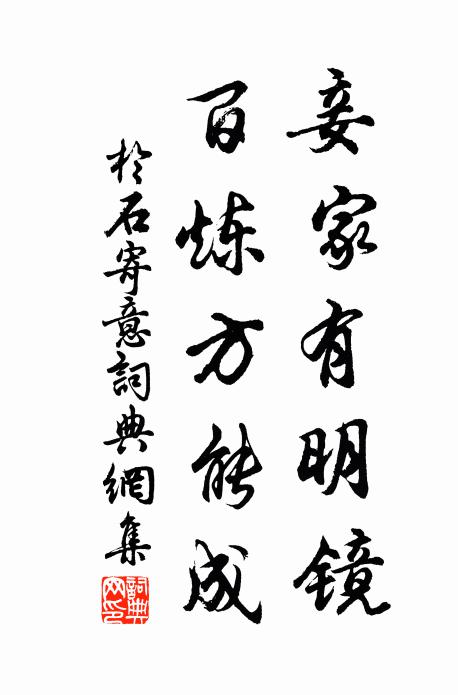 妾家有明镜
百炼方能成
於石寄意詞典網集
詞典
网印